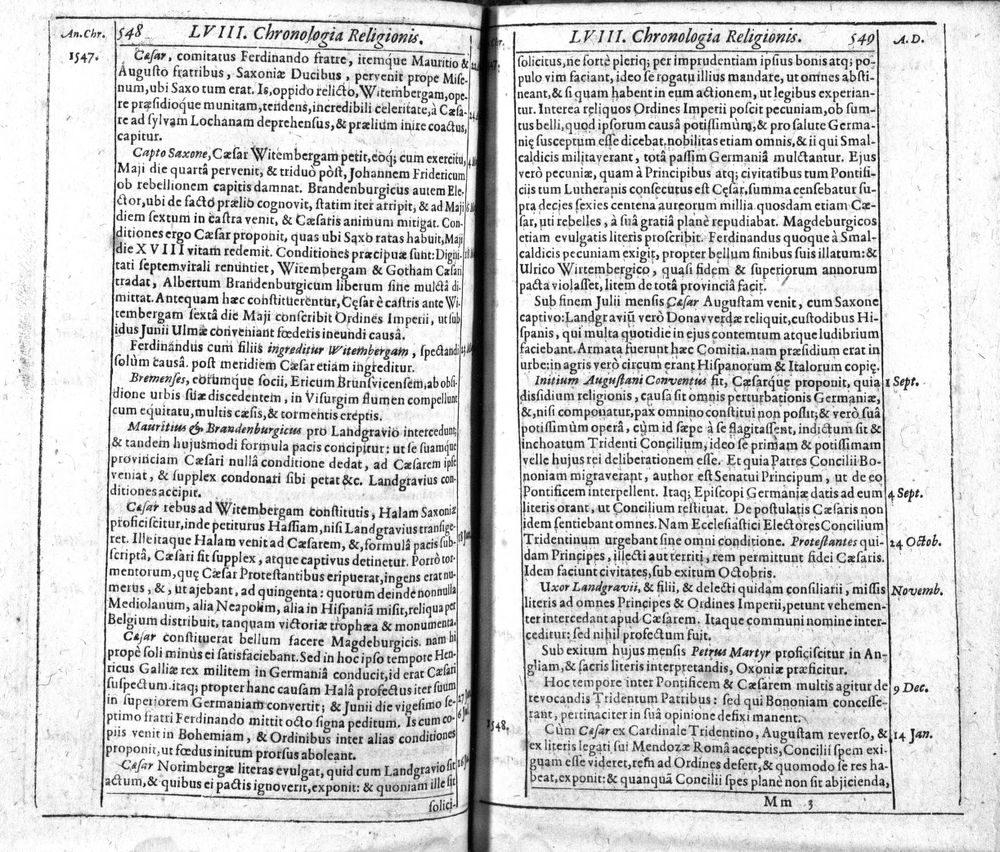 An. Chr. 548 LVIII. Chronologia Religionis.
1547. Cæsar, comitatus Ferdinando fratre, itemque Mauritio &
Augusto fratribus, Saxoniæ Ducibus, pervenit prope Mise-
num, ubi Saxo tum erat. Is, oppido relicto, Witembergam, ope-
re præsidioque munitam, tendens, incredibili celeritate, à Cæsa-
re ad sylvam Lochanam deprehensus, & prælium inire coactus,
capitur.
Capto Saxone, Cæsar Witembergam petit, eoq; cum exercitu,
Maji die quartâ pervenit, & triduo pòst, Johannem Fridericum
ob rebellionem capitis damnat. Brandenburgicus autem Ele-
ctor, ubi de facto prælio cognovit, statim iter arripit, & ad Maji
diem sextum in castra venit, & Cæsaris animum mitigat. Con-
ditiones ergo Cæsar proponit, quas ubi Saxo ratas habuit, Maji
die XVIII vitam redemit. Conditiones præcipuæ sunt: Digni-
tati septemvirali renuntiet, Witembergam & Gotham Cæsari
tradat, Albertum Brandenburgicum liberum sine mulctâ di-
mittat. Antequam hæc constituerentur, Cęsar è castris ante Wi-
tembergam sextâ die Maji conscribit Ordines Imperii, ut sub
idus Junii Ulmæ conveniant fœderis ineundi causâ.
Ferdinandus cum filiis ingreditur Witembergam, spectandi
solùm causâ. post meridiem Cæsar etiam ingreditur.
Bremenses, eorumque socii, Ericum Brunsvicensem, ab obsi-
dione urbis suæ discedentem, in Visurgim flumen compellunt
cum equitatu, multis cæsis, & tormentis ereptis.
Mauritius & Brandenburgicus pro Landgravio intercedunt,
& tandem hujusmodi formula pacis concipitur: ut se suamque
provinciam Cæsari nullâ conditione dedat, ad Cæsarem ipse
veniat, & supplex condonari sibi petat &c. Landgravius con-
ditiones accipit.
Cæsar rebus ad Witembergam constitutis, Halam Saxoniæ
proficiscitur, inde petiturus Hassiam, nisi Landgravius transige-
ret. Ille itaque Halam venit ad Cæsarem, &, formulâ pacis sub-
scriptâ, Cæsari fit supplex, atque captivus detinetur. Porrò tor-
mentorum, quę Cæsar Protestantibus eripuerat, ingens erat nu-
merus, &, ut ajebant, ad quingenta: quorum deinde nonnulla
Mediolanum, alia Neapolim, alia in Hispaniâ misit, reliqua per
Belgium distribuit, tanquam victoriæ trophæa & monumenta.
Cæsar constituerat bellum facere Magdeburgicis. nam hi
propè soli minùs ei satisfaciebant. Sed in hoc ipso tempore Hen-
ricus Galliæ rex militem in Germaniâ conducit, id erat Cæsari
suspectum. itaq; propter hanc causam Halâ profectus iter suum
in superiorem Germaniam convertit; & Junii die vigesimo se-
ptimo fratri Ferdinando mittit octo signa peditum. Is cum co-
piis venit in Bohemiam, & Ordinibus inter alias conditiones
proponit, ut fœdus initum prorsus aboleant.
Cæsar Norimbergæ literas evulgat, quid cum Landgravio sit
actum, & quibus ei pactis ignoverit, exponit: & quoniam ille sit
solici-
LVIII. Chronologia Religionis. 549 A. D.
solicitus, ne fortè pleriq; per imprudentiam ipsius bonis atq; po-
pulo vim faciant, ideo se rogatu illius mandare, ut omnes absti-
neant, & si quam habent in eum actionem, ut legibus experian-
tur. Interea reliquos Ordines Imperii poscit pecuniam, ob sum-
tus belli, quod ipsorum causâ potissimùm, & pro salute Germa-
nię susceptum esse dicebat. nobilitas etiam omnis, & ii qui Smal-
caldicis militaverant, totâ passim Germaniâ mulctantur. Ejus
verò pecuniæ, quam à Principibus atq; civitatibus tum Pontifi-
ciis tum Lutheranis consecutus est Cęsar, summa censebatur su-
pra decies sexies centena aureorum millia. quosdam etiam Cæ-
sar, uti rebelles, à suâ gratiâ planè repudiabat. Magdeburgicos
etiam evulgatis literis proscribit. Ferdinandus quoque à Smal-
caldicis pecuniam exigit, propter bellum finibus suis illatum: &
Ulrico Wirtembergico, quasi fidem & superiorum annorum
pacta violasset, litem de totâ provinciâ facit.
Sub finem Julii mensis Cæsar Augustam venit, cum Saxone
captivo: Landgraviũ verò Donavverdæ reliquit, custodibus Hi-
spanis, qui multa quotidie in ejus contemtum atque ludibrium
faciebant. Armata fuerunt hæc Comitia. nam præsidium erat in
urbe: in agris verò circum erant Hispanorum & Italorum copię.
Initium Augustani Conventus fit, Cæsarque proponit, quia 1 Sept.
dissidium religionis, causa sit omnis perturbationis Germaniæ,
&, nisi componatur, pax omnino constitui non possit; & verò suâ
potissimùm operâ, cùm id sæpè à se flagitassent, indictum sit &
inchoatum Tridenti Concilium, ideo se primam & potissimam
velle hujus rei deliberationem esse. Et quia Patres Concilii Bo-
noniam migraverant, author est Senatui Principum, ut de eo
Pontificem interpellent. Itaq; Episcopi Germaniæ datis ad eum 4 Sept.
literis orant, ut Concilium restituat. De postulatis Cæsaris non
idem sentiebant omnes. Nam Ecclesiastici Electores Concilium
Tridentinum urgebant sine omni conditione. Protestantes qui- 24 Octob.
dam Principes, illecti aut territi, rem permittunt fidei Cæsaris.
Idem faciunt civitates, sub exitum Octobris.
Uxor Landgravii, & filii, & delecti quidam consiliarii, missis Novemb.
literis ad omnes Principes & Ordines Imperii, petunt vehemen-
ter intercedant apud Cæsarem. Itaque communi nomine inter-
ceditur: sed nihil profectum fuit.
Sub exitum hujus mensis Petrus Martyr proficiscitur in An-
gliam, & sacris literis interpretandis, Oxoniæ præficitur.
Hoc tempore inter Pontificem & Cæsarem multis agitur de 9 Dec.
revocandis Tridentum Patribus: sed qui Bononiam concesse-
rant, pertinaciter in suâ opinione defixi manent.
1548. Cùm Cæsar ex Cardinale Tridentino, Augustam reverso, & 14 Jan.
ex literis legati sui Mendozæ Româ acceptis, Concilii spem exi-
guam esse videret, rem ad Ordines defert, & quomodo se res ha-
beat, exponit: & quanquã Concilii spes planè non sit abjicienda,
Mm 3